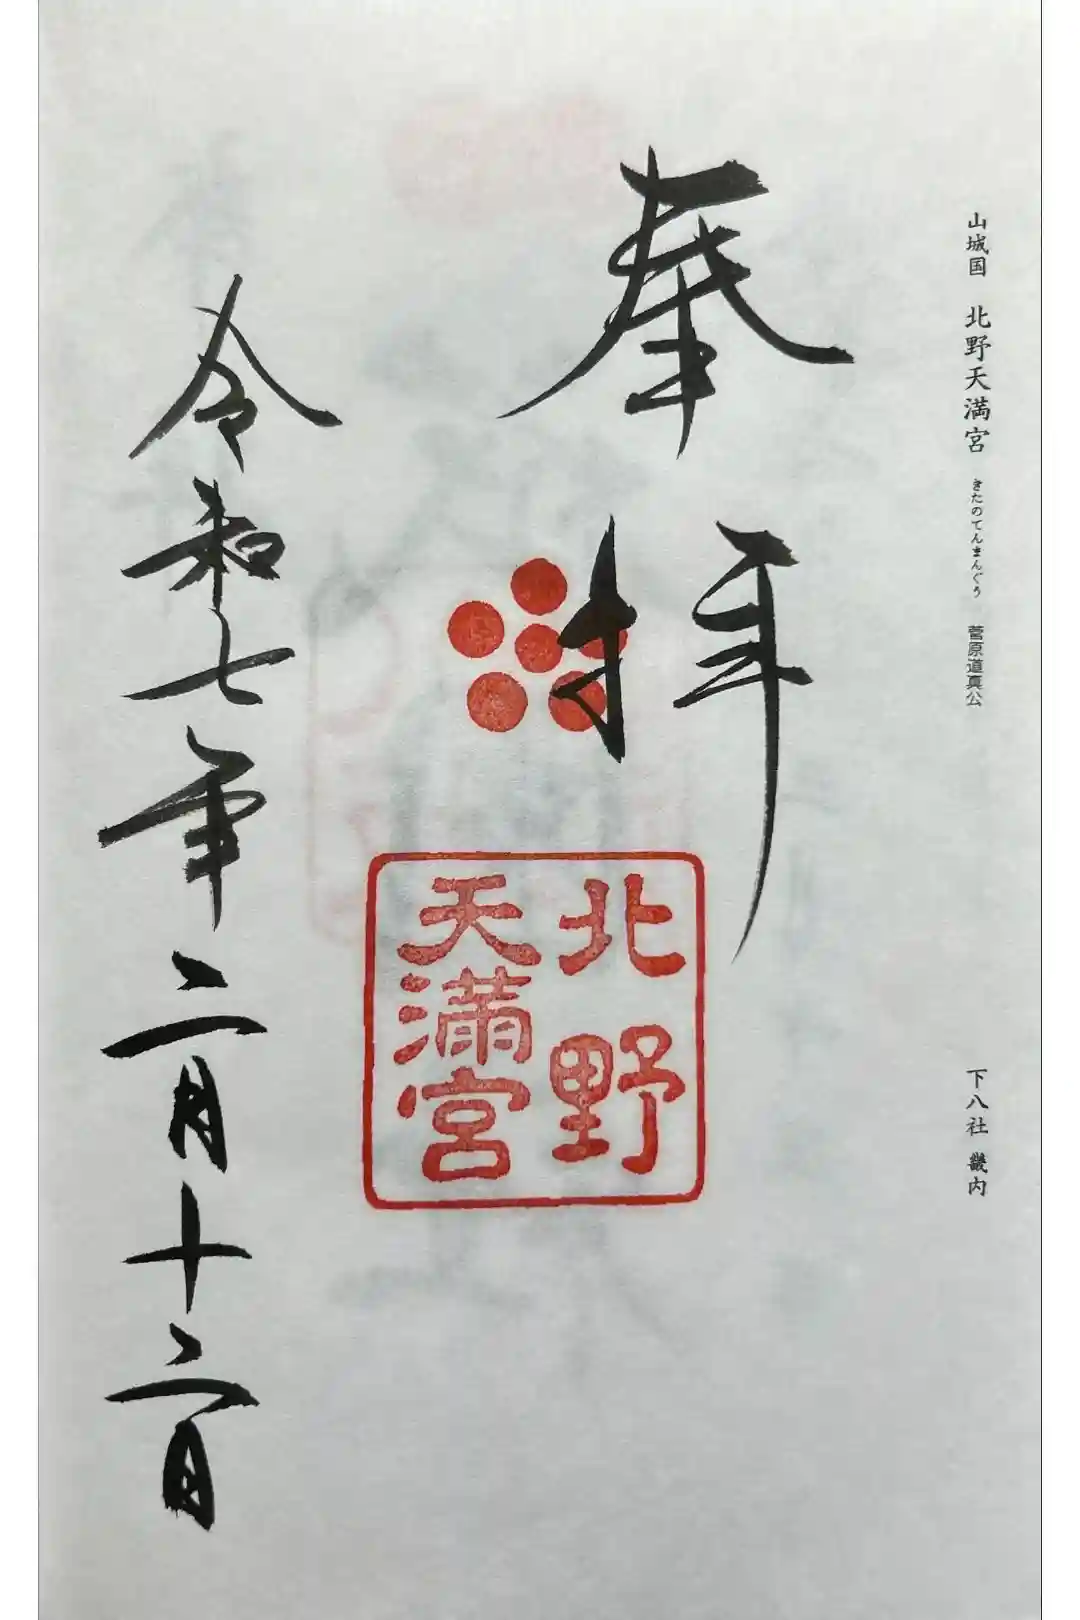 山城国 北野天満宮 きたのてんまんぐう 菅原道真公
下八社 畿内
奉拝
北野
天満宮
令和七年二月十二日